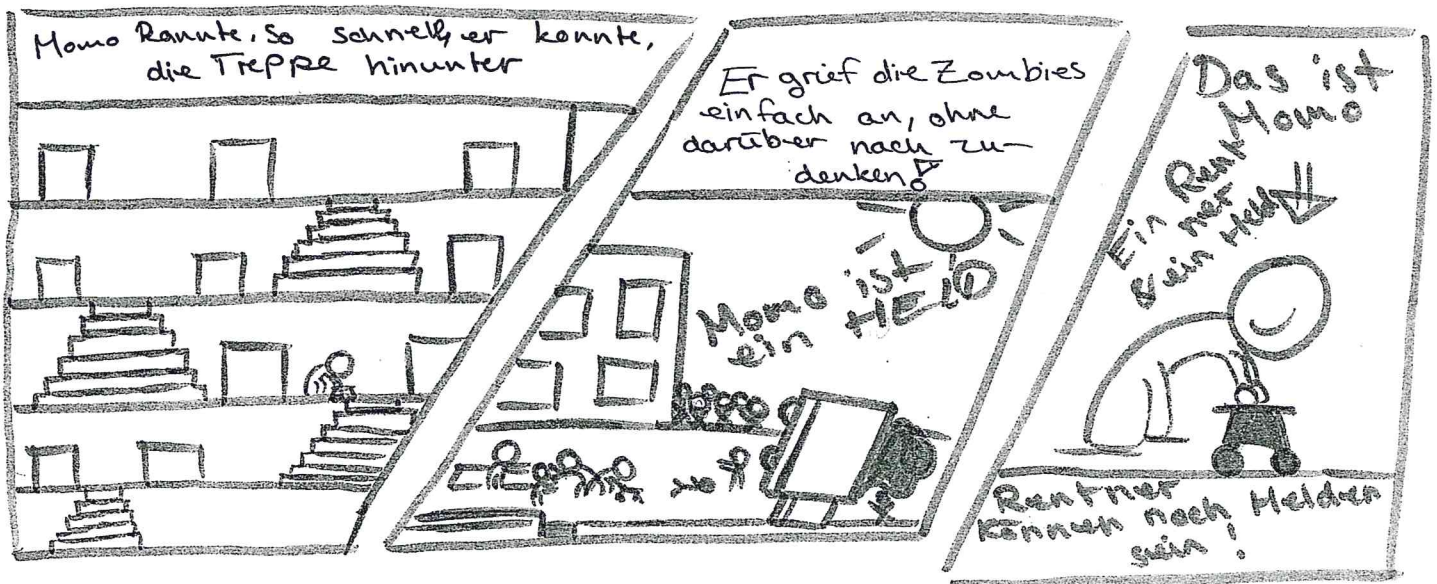 Momo Rannte, So schnell, er konnte,
die Treppe hinunter
Er grief die Zombies
einfach an, ohne
darüber nach zu-
denken!
Momo ist
ein HELD
Das ist
Momo
Ein Rent
ner
ein Held
Rentner
können noch Helden
sein!